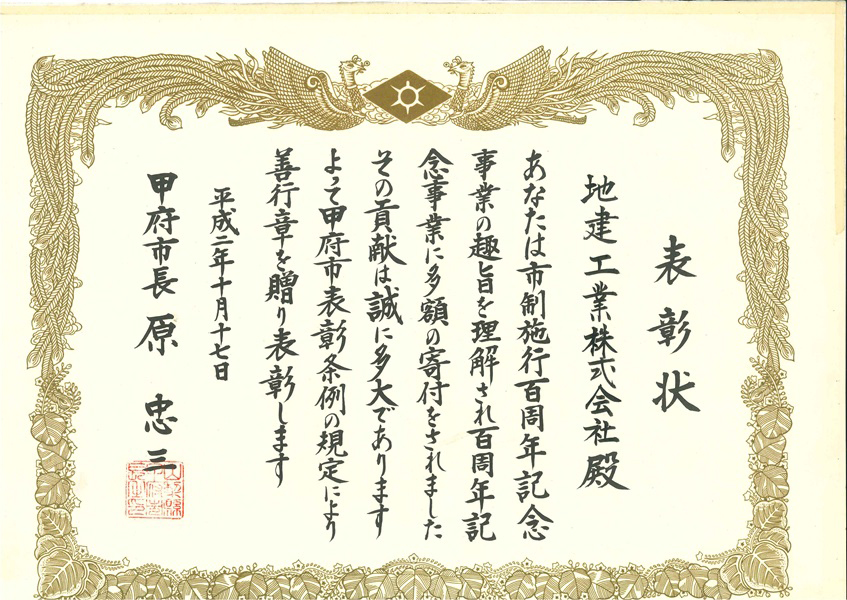 表彰状
地建工業株式会社殿
あなたは市制施行百周年記念
事業の趣旨を理解され百周年記
念事業に多額の寄付をされました
その貢献は誠に多大であります
よって甲府市表彰条例の規定により
善行章を贈り表彰します
平成二年十月十七日
甲府市長 原 忠三